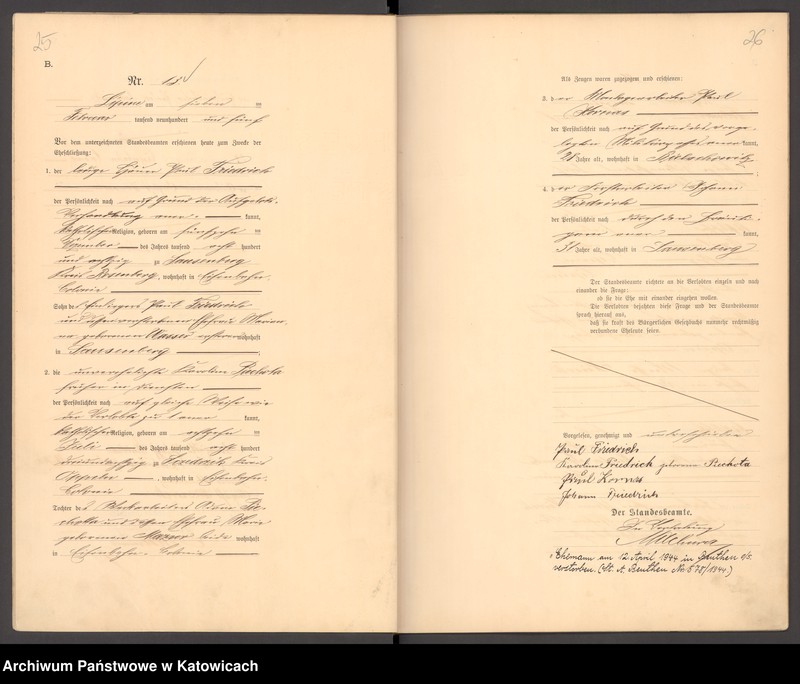 25
B.
Nr. 15
Lipine am sieben ten
Februar tausend neunhundert und fünf
Vor dem unterzeichneten Standesbeamten erschienen heute zum Zwecke der
Eheschließung:
1. der ledige Häuer Paul Friedrich
der Persönlichkeit nach auf Grund der Aufgebots-
Verhandlung aner- kannt,
katholischer Religion, geboren am fünfzehn ten
des Jahres tausend acht hundert
und achtzig zu Sausenberg
Kreis Rosenberg, wohnhaft in Eisenbahn-
Colonie
Sohn des Paul Friedrich
und dessen verstorbenen Ehefrau Marian-
na geborenen wohnhaft
in Sausenberg
2. die unverehelichte Karoline Piechota
früher in Diensten
der Persönlichkeit nach auf gleiche Weise wie
der Verlobte zu 1 aner- kannt,
katholischer Religion, geboren am achtzehn ten
Juli des Jahres tausend acht hundert
dreiundachtzig zu Kreis
Oppeln, wohnhaft in Eisenbahn-
Colonie
Tochter des Pie-
chotta und dessen Ehefrau Marie
geborenen beide wohnhaft
in Eisenbahn-Colonie
26
Als Zeugen waren zugezogen und erschienen:
3. der Paul
Kornas
der Persönlichkeit nach auf Grund des vorge-
legten Militärpasses aner kannt,
28 Jahre alt, wohnhaft in
4. der Johann
Friedrich
der Persönlichkeit nach durch den Bräuti-
gam aner kannt,
31 Jahre alt, wohnhaft in Sausenberg
Der Standesbeamte richtete an die Verlobten einzeln und nach
einander die Frage:
ob sie die Ehe mit einander eingehen wollen.
Die Verlobten bejahten diese Frage und der Standesbeamte
sprach hierauf aus,
daß sie kraft des Bürgerlichen Gesetzbuchs nunmehr rechtmäßig
verbundene Eheleute seien.
Vorgelesen, genehmigt und unterschrieben
Paul Friedrich
Karoline Friedrich geborene Piechota
Paul Kornas
Johann Friedrich
Der Standesbeamte.
In Vertretung
Ehemann am 12 April 1944 in Beuthen O/S.
verstorben. (St. A. Beuthen Nr. 578/1944)
Archiwum Państwowe w Katowicach